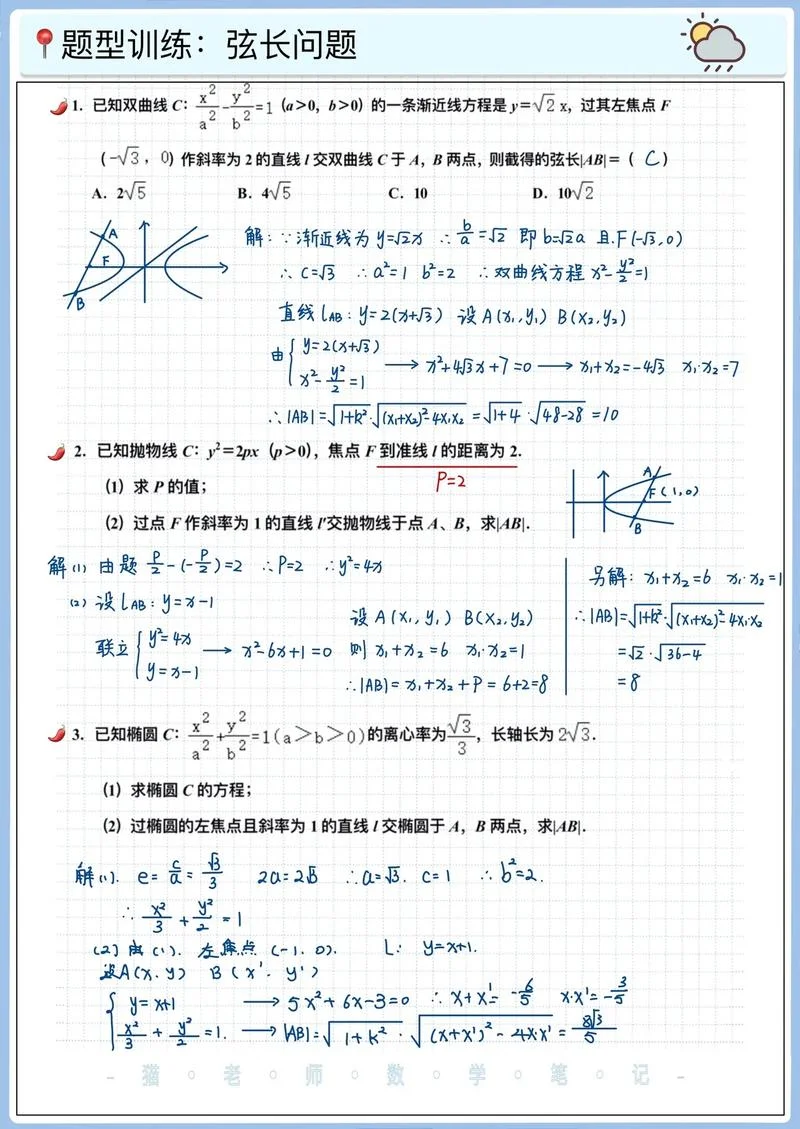 题型训练：弦长问题
1. 已知双曲线 C：x²/a²-y²/b²=1（a＞0，b＞0）的一条渐近线方程是 y=√2 x，过其左焦点 F
(-√3，0) 作斜率为 2 的直线 l 交双曲线 C 于 A，B 两点，则截得的弦长|AB|=（ C ）
A. 2√5 B. 4√5 C. 10 D. 10√2
A
F
B
解：∵渐近线为 y=√2x ∴b/a=√2 即 b=√2a 且 F(-√3,0)
∴c=√3 ∴a²=1 b²=2 ∴双曲线方程 x²-y²/2=1
直线 l_AB：y=2(x+√3) 设 A(x₁,y₁) B(x₂,y₂)
由{y=2(x+√3)
x²-y²/2=1 → x²+4√3x+7=0 → x₁+x₂=-4√3 x₁·x₂=7
∴|AB|=√(1+k²)·√((x₁+x₂)²-4x₁x₂)=√(1+4)·√(48-28)=10
2. 已知抛物线 C：y²=2px（p＞0），焦点 F 到准线 l 的距离为 2.
P=2
（1）求 P 的值；
（2）过点 F 作斜率为 1 的直线 l′交抛物线于点 A、B，求|AB|.
A
F(1,0)
B
解(1) 由题 P/2-(-P/2)=2 ∴P=2 ∴y²=4x
(2) 设 l_AB：y=x-1
联立{y²=4x
y=x-1 → x²-6x+1=0
设 A(x₁,y₁) B(x₂,y₂)
则 x₁+x₂=6 x₁·x₂=1
∴|AB|=x₁+x₂+P=6+2=8
另解：x₁+x₂=6 x₁·x₂=1
∴|AB|=√(1+k²)·√((x₁+x₂)²-4x₁·x₂)
=√2·√(36-4)
=8
3. 已知椭圆 C：x²/a²+y²/b²=1(a＞b＞0)的离心率为√3/3，长轴长为 2√3.
（1）求椭圆 C 的方程；
（2）过椭圆的左焦点且斜率为 1 的直线 l 交椭圆于 A，B 两点，求|AB|.
解(1). e=c/a=√3/3 2a=2√3 ∴a=√3. c=1 ∴b²=2.
∴x²/3+y²/2=1
(2) 由(1). 左焦点(-1.0). L: y=x+1.
设A(x.y) B(x'.y')
{y=x+1 → 5x²+6x-3=0 ∴x+x'=-6/5 x·x'=-3/5
x²/3+y²/2=1. → |AB|=√(1+k²)·√((x+x')²-4x·x')=8√3/5
- 猫 ◦ 老 ◦ 师 ◦ 数 ◦ 学 ◦ 笔 ◦ 记 -